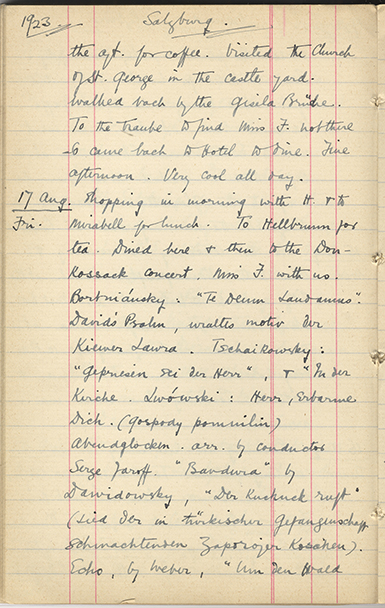 1923 Salzburg.
the aft. for coffee. Visited the Church
of St. George in the castle yard.
Walked back by the Gisela Brücke.
To the Traube to find Miss F. not there
so came back to Hotel to dine. Fine
afternoon. Very cool all day.
17 Aug. Shopping in morning with H. & to
Fri. Mirabell for lunch. To Hellbrunn for
tea. Dined here & then to the Don-
Kossack concert. Miss F. with us.
Bortniánsky: "Te Deum Laudamus".
Davids Psalm, uraltes motiv der
Kiewer Lawra. Tschaikowsky:
"Gepriesen sei der Herr", & "In der
Kirche. Lwówski: Herr, Erbarme
Dich. (Gospody pomniliu)
Abendglocken. arr. by conductor
Serge Jaroff. "Bandura" by
Dawidowsky, "Der Kuckuck ruft"
(Lied der in türkischer Gefangenschaft
schmachtenden Zaporojer Kosaken).
Echo, by Weber, "Um den Wald